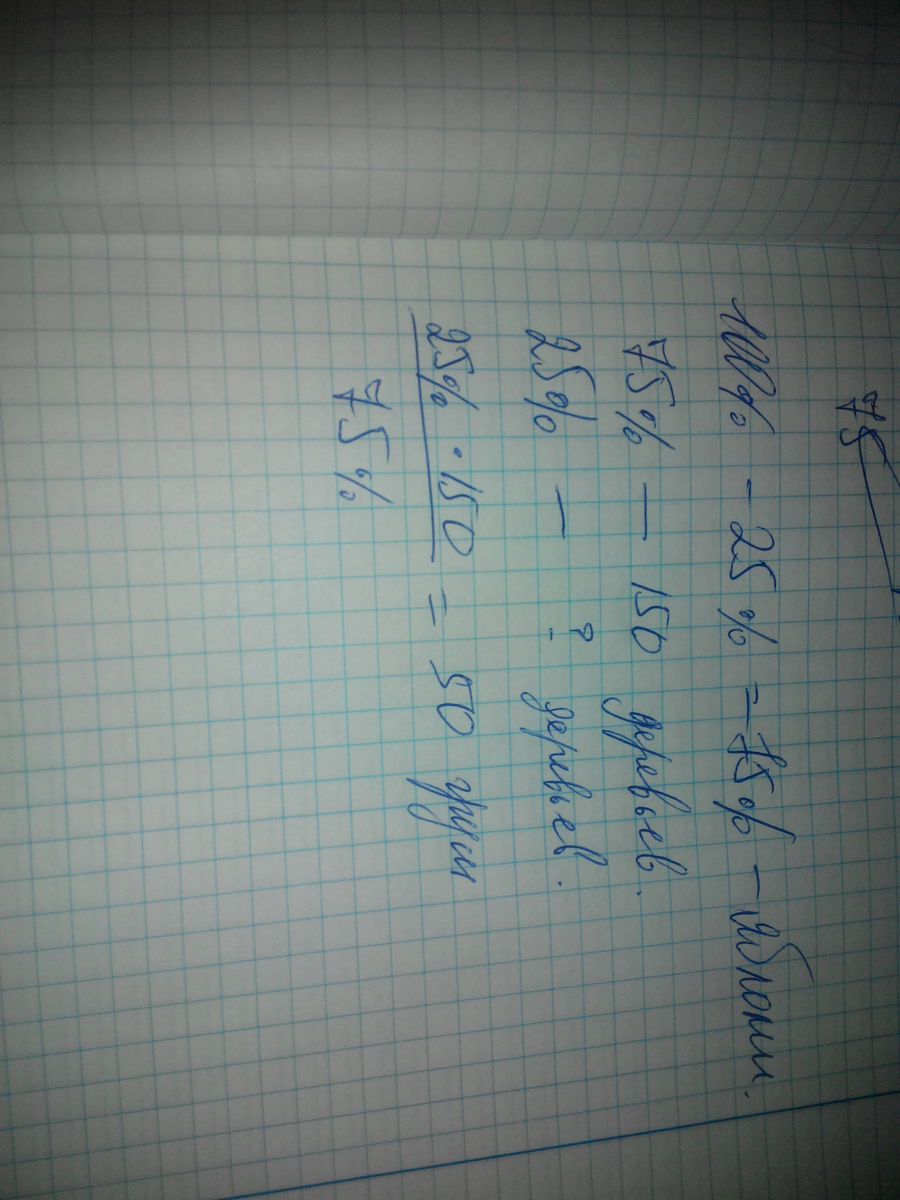 75
100% - 25% = 75% - яблони.
75% — 150 деревьев.
25% — ? деревьев.
25% · 150 = 50 груш
75%